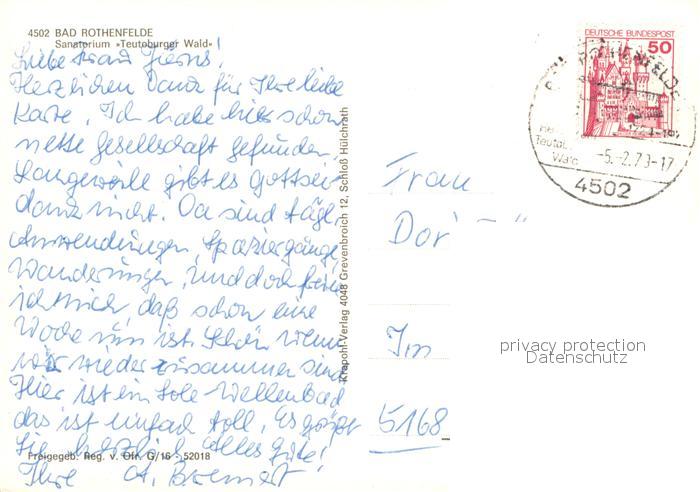 4502 BAD ROTHENFELDE
Sanatorium »Teutoburger Wald«
Liebe Frau
Herzlichen Dank für Ihre liebe
Karte. Ich habe hier schon
nette Gesellschaft gefunden,
Langeweile gibt es Gottsei-
dank nicht. Da sind tägl.
Anwendungen, Spaziergänge,
Wanderungen, und doch freue
ich mich, daß schon eine
Woche um ist. Schön wenn
wir wieder zusammen sind
Hier ist ein Sole Wellenbad
das ist einfach toll. Es grüßt
Sie herzlich alles Gute!
Ihre A.
Freigegeb: Reg. v. Ofr. G/16 - 52018
Krapohl-Verlag 4048 Grevenbroich 12, Schloß Hülchrath
DEUTSCHE BUNDESPOST
50
Teutob
Wald
4502
Frau
Dor
Im
5168
privacy protection
Datenschutz